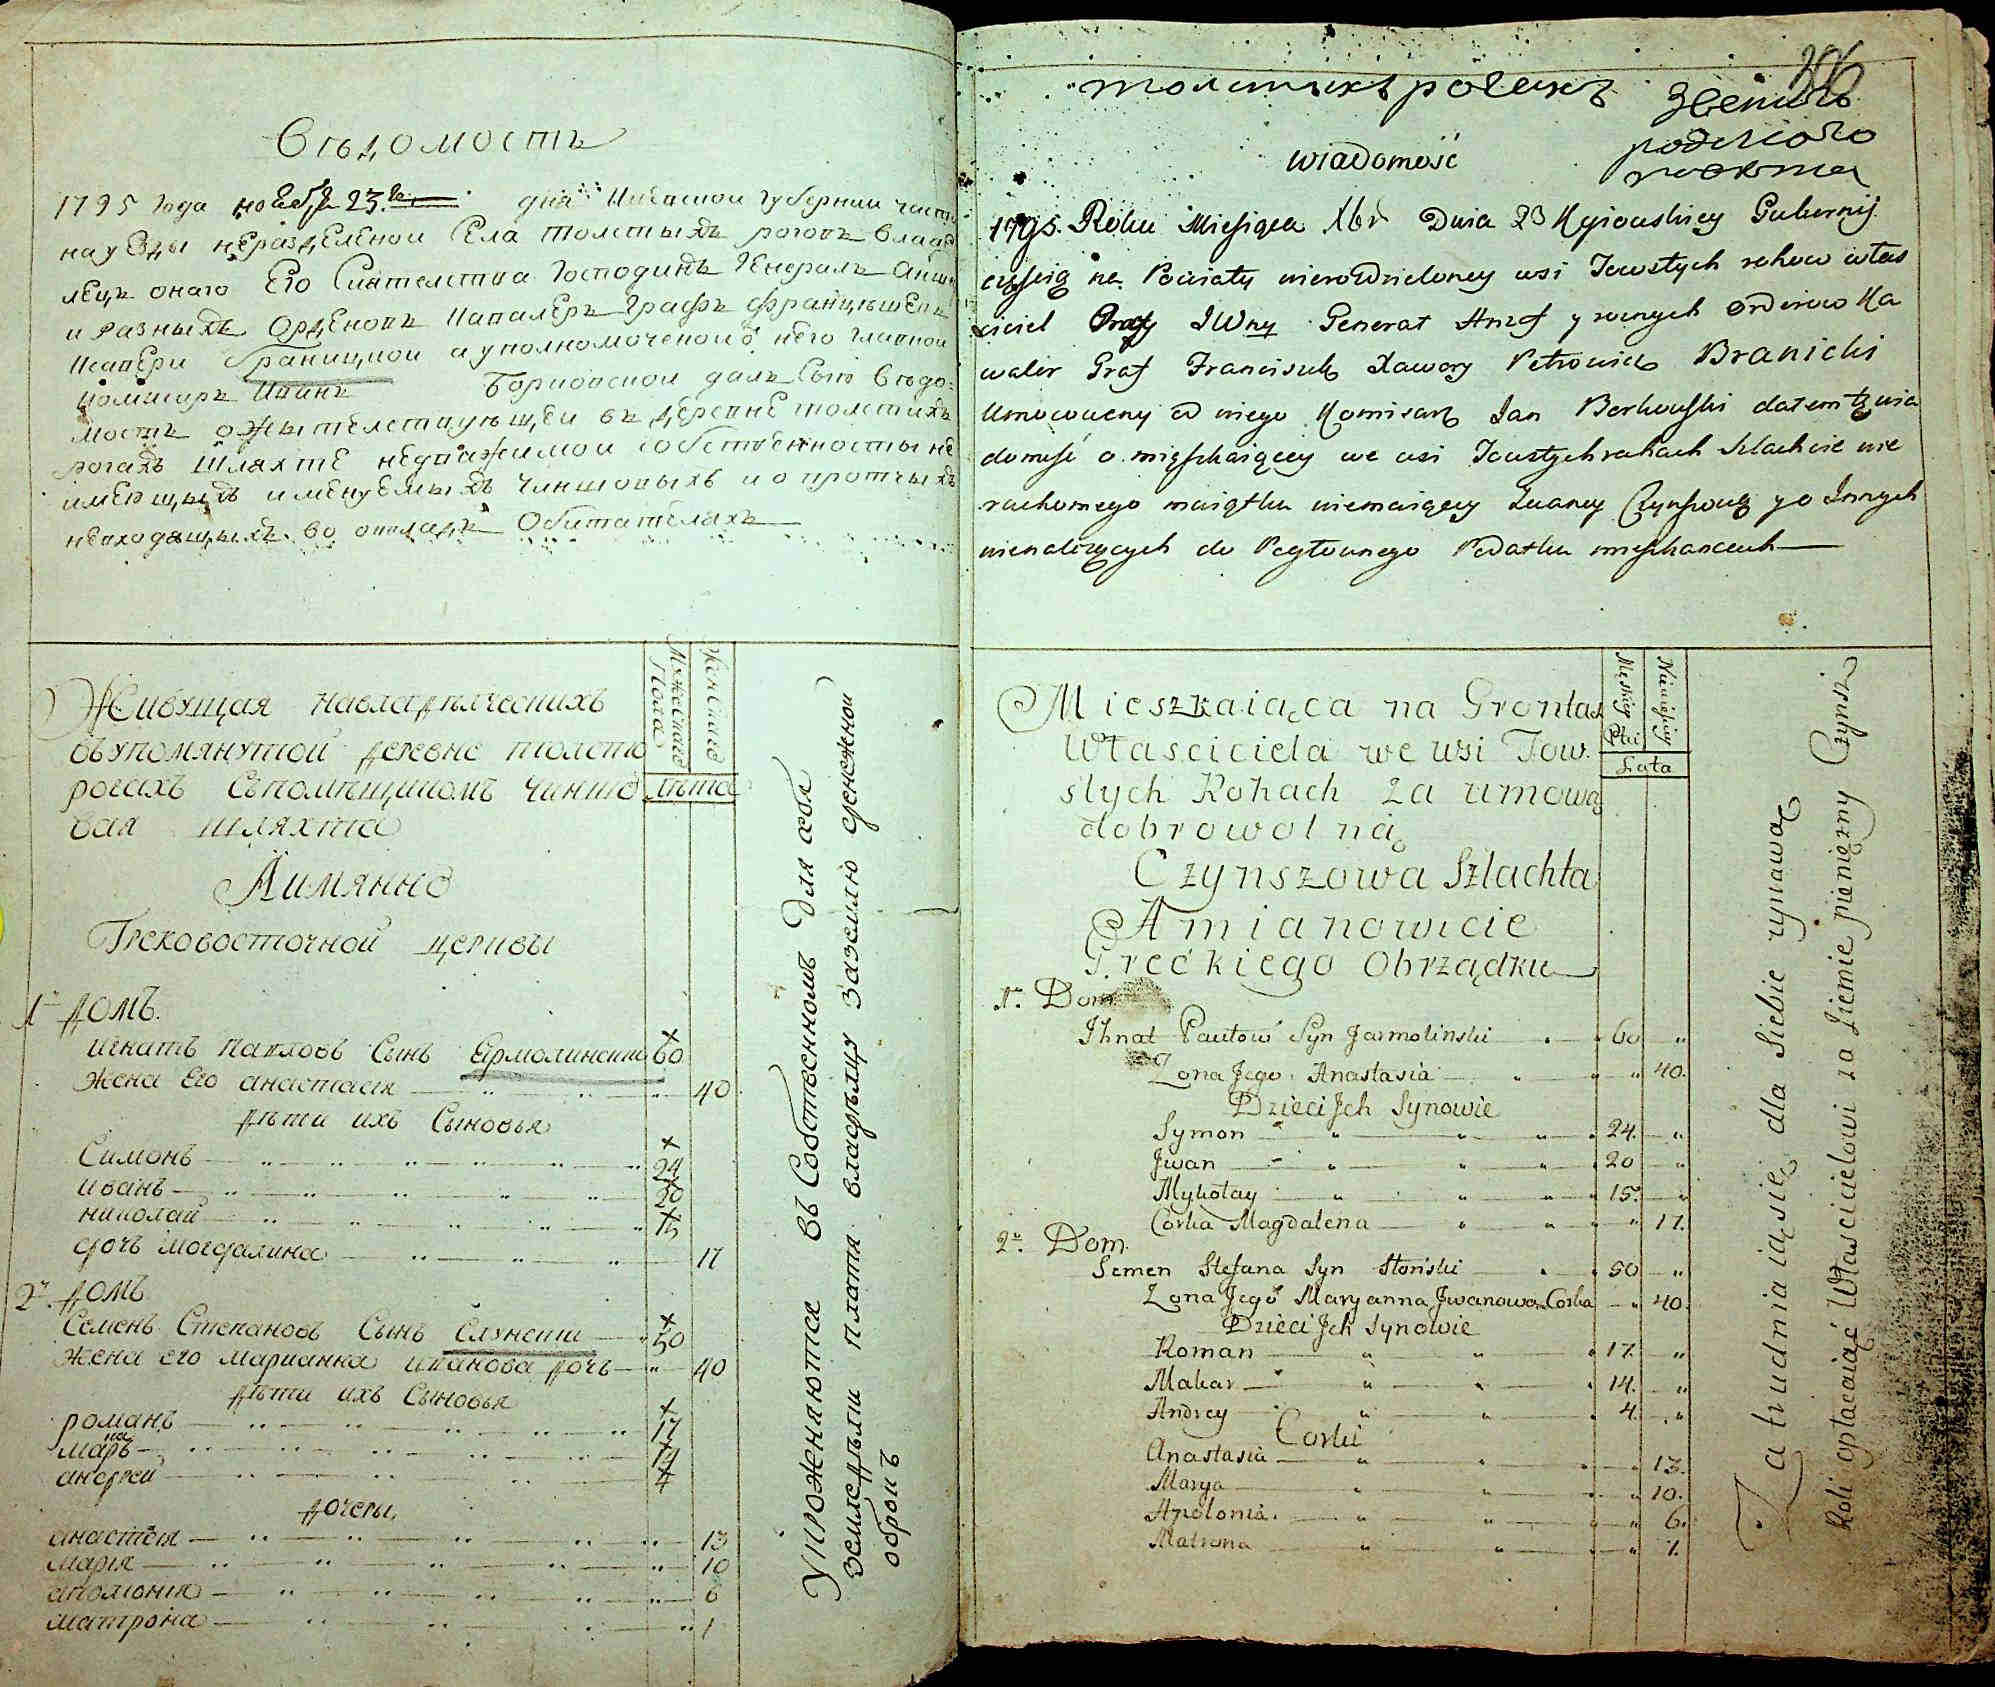 Вѣдомость
1795 года ноября 23го дня Киевской губернии части
на уезды неразделеной Села Толстыхъ роговъ владѣ
лецъ онаго Его Сиятелства Господинъ Генералъ Аншеѣ
и разныхъ Орденовъ Кавалеръ Графъ Францѣшекъ
Ксавери Браницкои а уполномоченой ѿ него главной
комисаръ Иванъ Борковской далъ Сию вѣдо:
мость о жытелствующей въ деревне толстихъ
рогахъ Шляхте недвижимой собственносты не
имеющыхъ именуемыхъ чиншовыхъ и о протчыхъ
невходящыхъ во окладъ Обитателахъ
Мужескаго Пола
Женскаго
Лѣта
Живущая навладѣлческихъ
въупомянутой деревне толсто
рогахъ съпомѣщикомъ чиншо
вая шляхта
Аимянно
Грековосточной церквы
1й домъ.
игнатъ Павловъ Сынъ Ермолинский 60
жена Его анастасия 40
дѣти ихъ Сыновья
Симонъ 24
иванъ 20
николай 15
дочь могдалина 17
2й домъ
Семенъ Степановъ Сынъ Слунский 50
жена его марианна иванова дочь 40
дѣти ихъ Сыновья
романъ 17
макаръ 14
андрей 4
дочеры
анастасия 13
мария 10
аполония 6
матрона 1
Упрожненяются въ Собственномъ для себя
Земледѣлѣи платя владѣлцу заземлю денежной
оброкъ
толстихъ рогахъ
306
wiadomość
1795. Roku Miesiąca Xbr Dnia 23 Kyiowskiey Gubernij
części na Powiaty nierozdzieloney wsi Towstych rohow włas
ciciel Graf JWny Generał Anszef y roznych orderow Ka
waler Graf Franciszek Xawery Petrowicz Branicki
Umocowany od niego Komisarz Jan Borkowski datem tę wia
domość o mięszkaiącey we wsi Towstych rohach Szlachcie nie
ruchomego maiątku niemaiącey zwaney Czynszową y o Innych
nienależących do Pogłownego Podatku mieszkancach
Męskiey Płci
Niewieskiey
Liata
Mieszkaiąca na Grontach
Własciciela we wsi Tow
stych Rohach za umową
dobrowolną
Czynszowa Szlachta
Amianowicie
Greckiego Obrządku
1. Dom
Ihnat Pawłow Syn Jarmolinski 60
Zona Jego Anastasia 40.
Dzieci Jch Synowie
Symon 24.
Jwan 20
Mykołay 15.
Corka Magdalena 17.
2. Dom.
Semen Stefana Syn Słonski 50
Zona Jego Maryanna Jwanowa Corka 40.
Dzieci Jch Synowie
Roman 17.
Makar 14.
Andrey 4.
Corki
Anastasia 13.
Marya 10.
Apolonia 6.
Matrona 1.
Zatrudniaiąsię dla Siebie uprawą
Roli opłacaiąć Własćicielowi za Ziemie pieniężny Czynsz